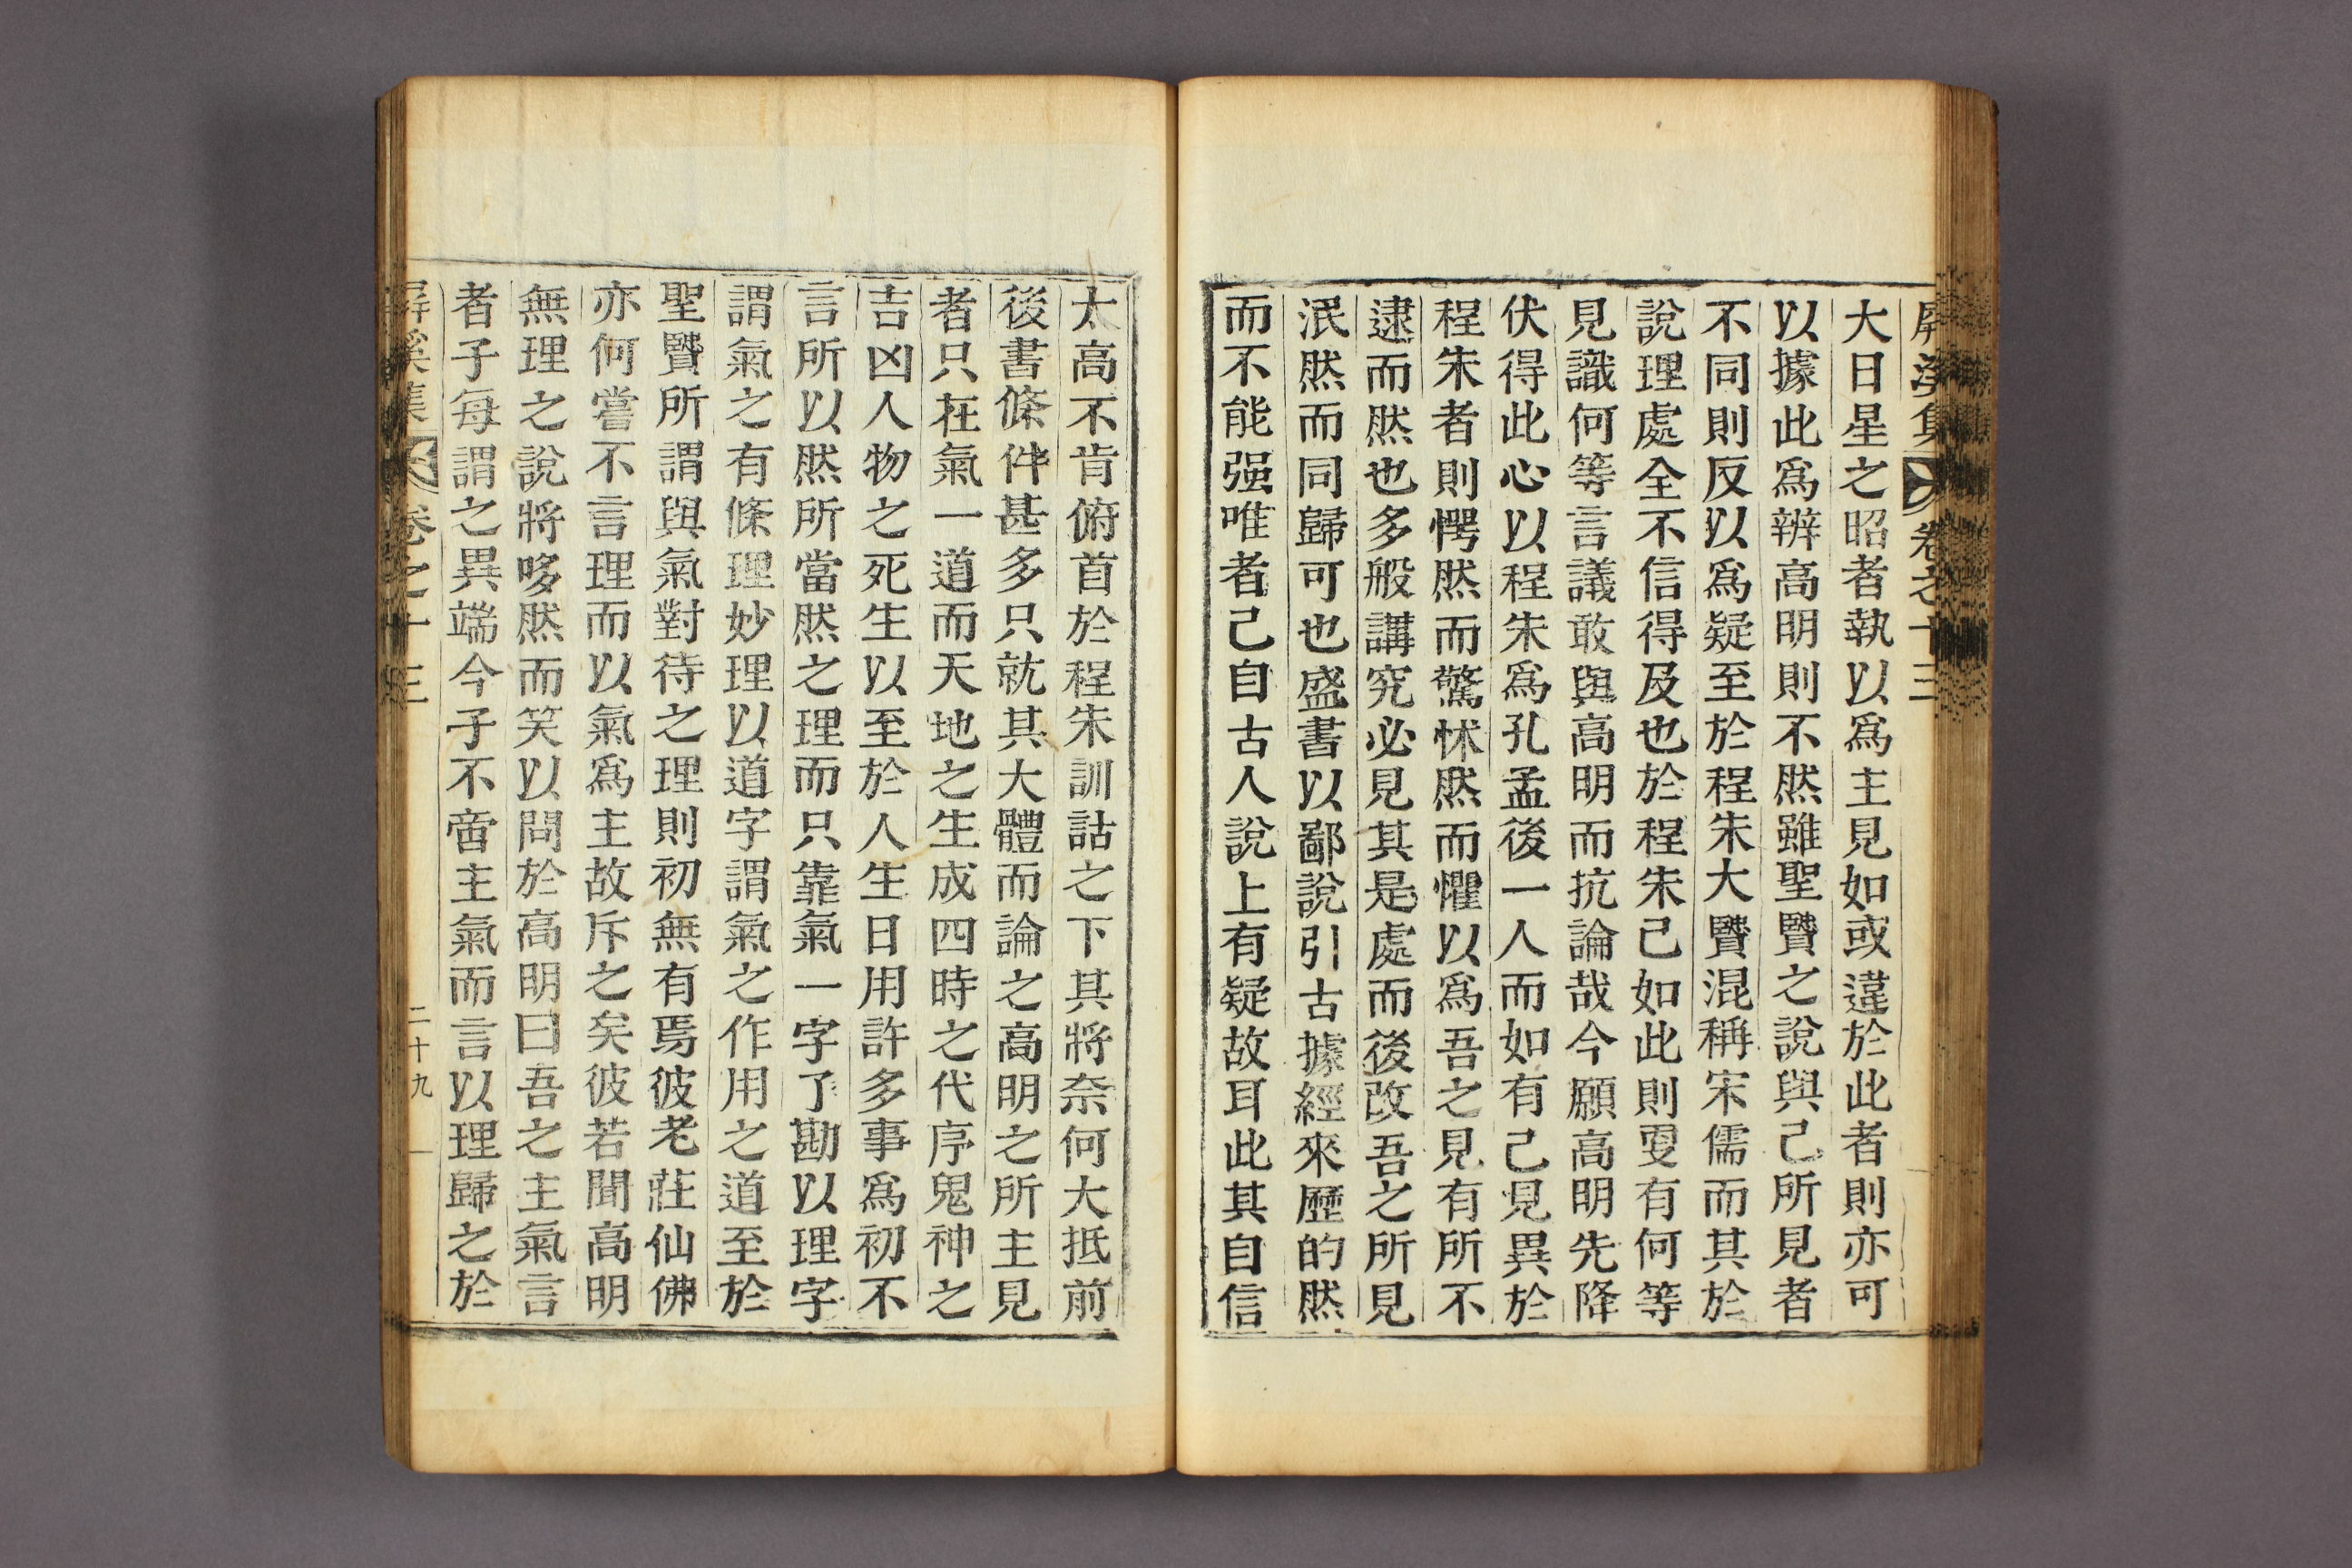 屏溪集 卷之十三
大日星之昭者執以爲主見如或違於此者則亦可
以據此爲辨高明則不然雖聖賢之說與己所見者
不同則反以爲疑至於程朱大賢混稱宋儒而其於
說理處全不信得及也於程朱己如此則更有何等
見識何等言議敢與高明而抗論哉今願高明先降
伏得此心以程朱爲孔孟後一人而如有己見異於
程朱者則愕然而驚怵然而懼以爲吾之見有所不
逮而然也多般講究必見其是處而後改吾之所見
泯然而同歸可也盛書以鄙說引古據經來歷的然
而不能强唯者己自古人說上有疑故耳此其自信
太高不肯俯首於程朱訓詁之下其將奈何大抵前
後書條件甚多只就其大體而論之高明之所主見
者只在氣一道而天地之生成四時之代序鬼神之
吉凶人物之死生以至於人生日用許多事爲初不
言所以然所當然之理而只靠氣一字了勘以理字
謂氣之有條理妙理以道字謂氣之作用之道至於
聖賢所謂與氣對待之理則初無有焉彼老莊仙佛
亦何嘗不言理而以氣爲主故斥之矣彼若聞高明
無理之說將哆然而笑以問於高明曰吾之主氣言
者子每謂之異端今子不啻主氣而言以理歸之於
屏溪集 卷之十三 二十九